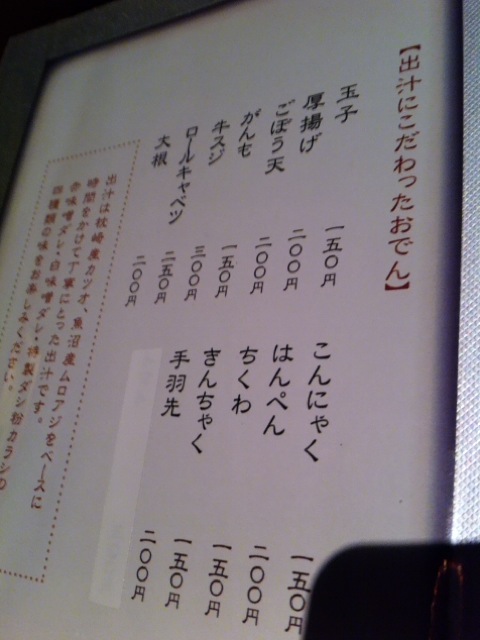 【出汁にこだわったおでん】
玉子 一五〇円
厚揚げ 二〇〇円
ごぼう天 二〇〇円
がんも 一五〇円
牛スジ 三〇〇円
ロールキャベツ 二五〇円
大根 二〇〇円
こんにゃく 一五〇円
はんぺん 二〇〇円
ちくわ 一五〇円
きんちゃく 一五〇円
手羽先 二〇〇円
出汁は枕崎産カツオ、魚沼産ムロアジをベースに
時間をかけて丁寧にとった出汁です。
赤味噌ダシ・白味噌ダシ・特製ダシ粉カラシの
四種類の味をお楽しみください。